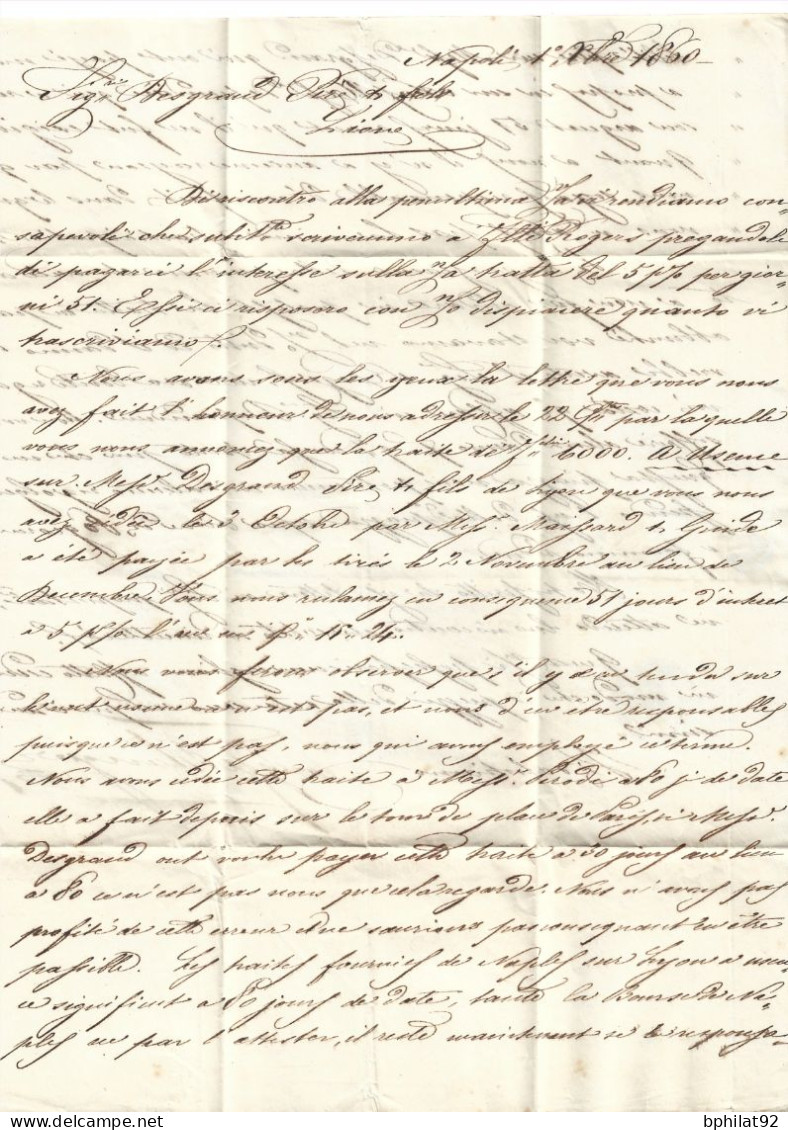 Napoli 1° Xbre 1860
Sigri Desgrand Père & fils
Lione
Di riscontro alla penultima Vra vi rendiamo con-
sapevoli che subito scrivemmo a Rogers pregandoli
di pagarci l'interesse sulla Vra tratta del 5 p% per gior-
ni 51. Essi ci risposero con Nro dispiacere quanto vi
trascriviamo.
Nous avons sous les yeux la lettre que vous nous
avez fait l'honneur de nous adresser le 22 par laquelle
vous nous annoncez que la traite de 6000. A Usance
sur Messrs Desgrand Père & fils de Lyon que vous nous
avez cédée le 3 Octobre par Messrs & Guide
a été payée par les tirés le 2 Novembre au lieu de
Decembre. Vous nous reclamez en consequence 51 jours d'interet
à 5 p%
Nous vous ferons observer que s'il y a sur
le mot usance n'est pas, et nous d'en être responsables
puisque ce n'est pas, nous qui avons employé ce terme.
Nous avons cédée cette traite à Messrs à 60 j. de date
elle a fait depuis sur le tour de place de Paris, si Messrs
Desgrand ont voulu payer cette traite à 30 jours au lieu
à 60 ce n'est pas nous que cela regarde. Nous n'avons pas
profité de cette erreur & ne saurions par conséquent en être
passible. Les traites fournies de Naples sur Lyon a usan-
ce signifient a 60 jours de date, toute la Bourse de Na-
ples ne par l'attester, il reste maintenant si le responsa-
bphilat92